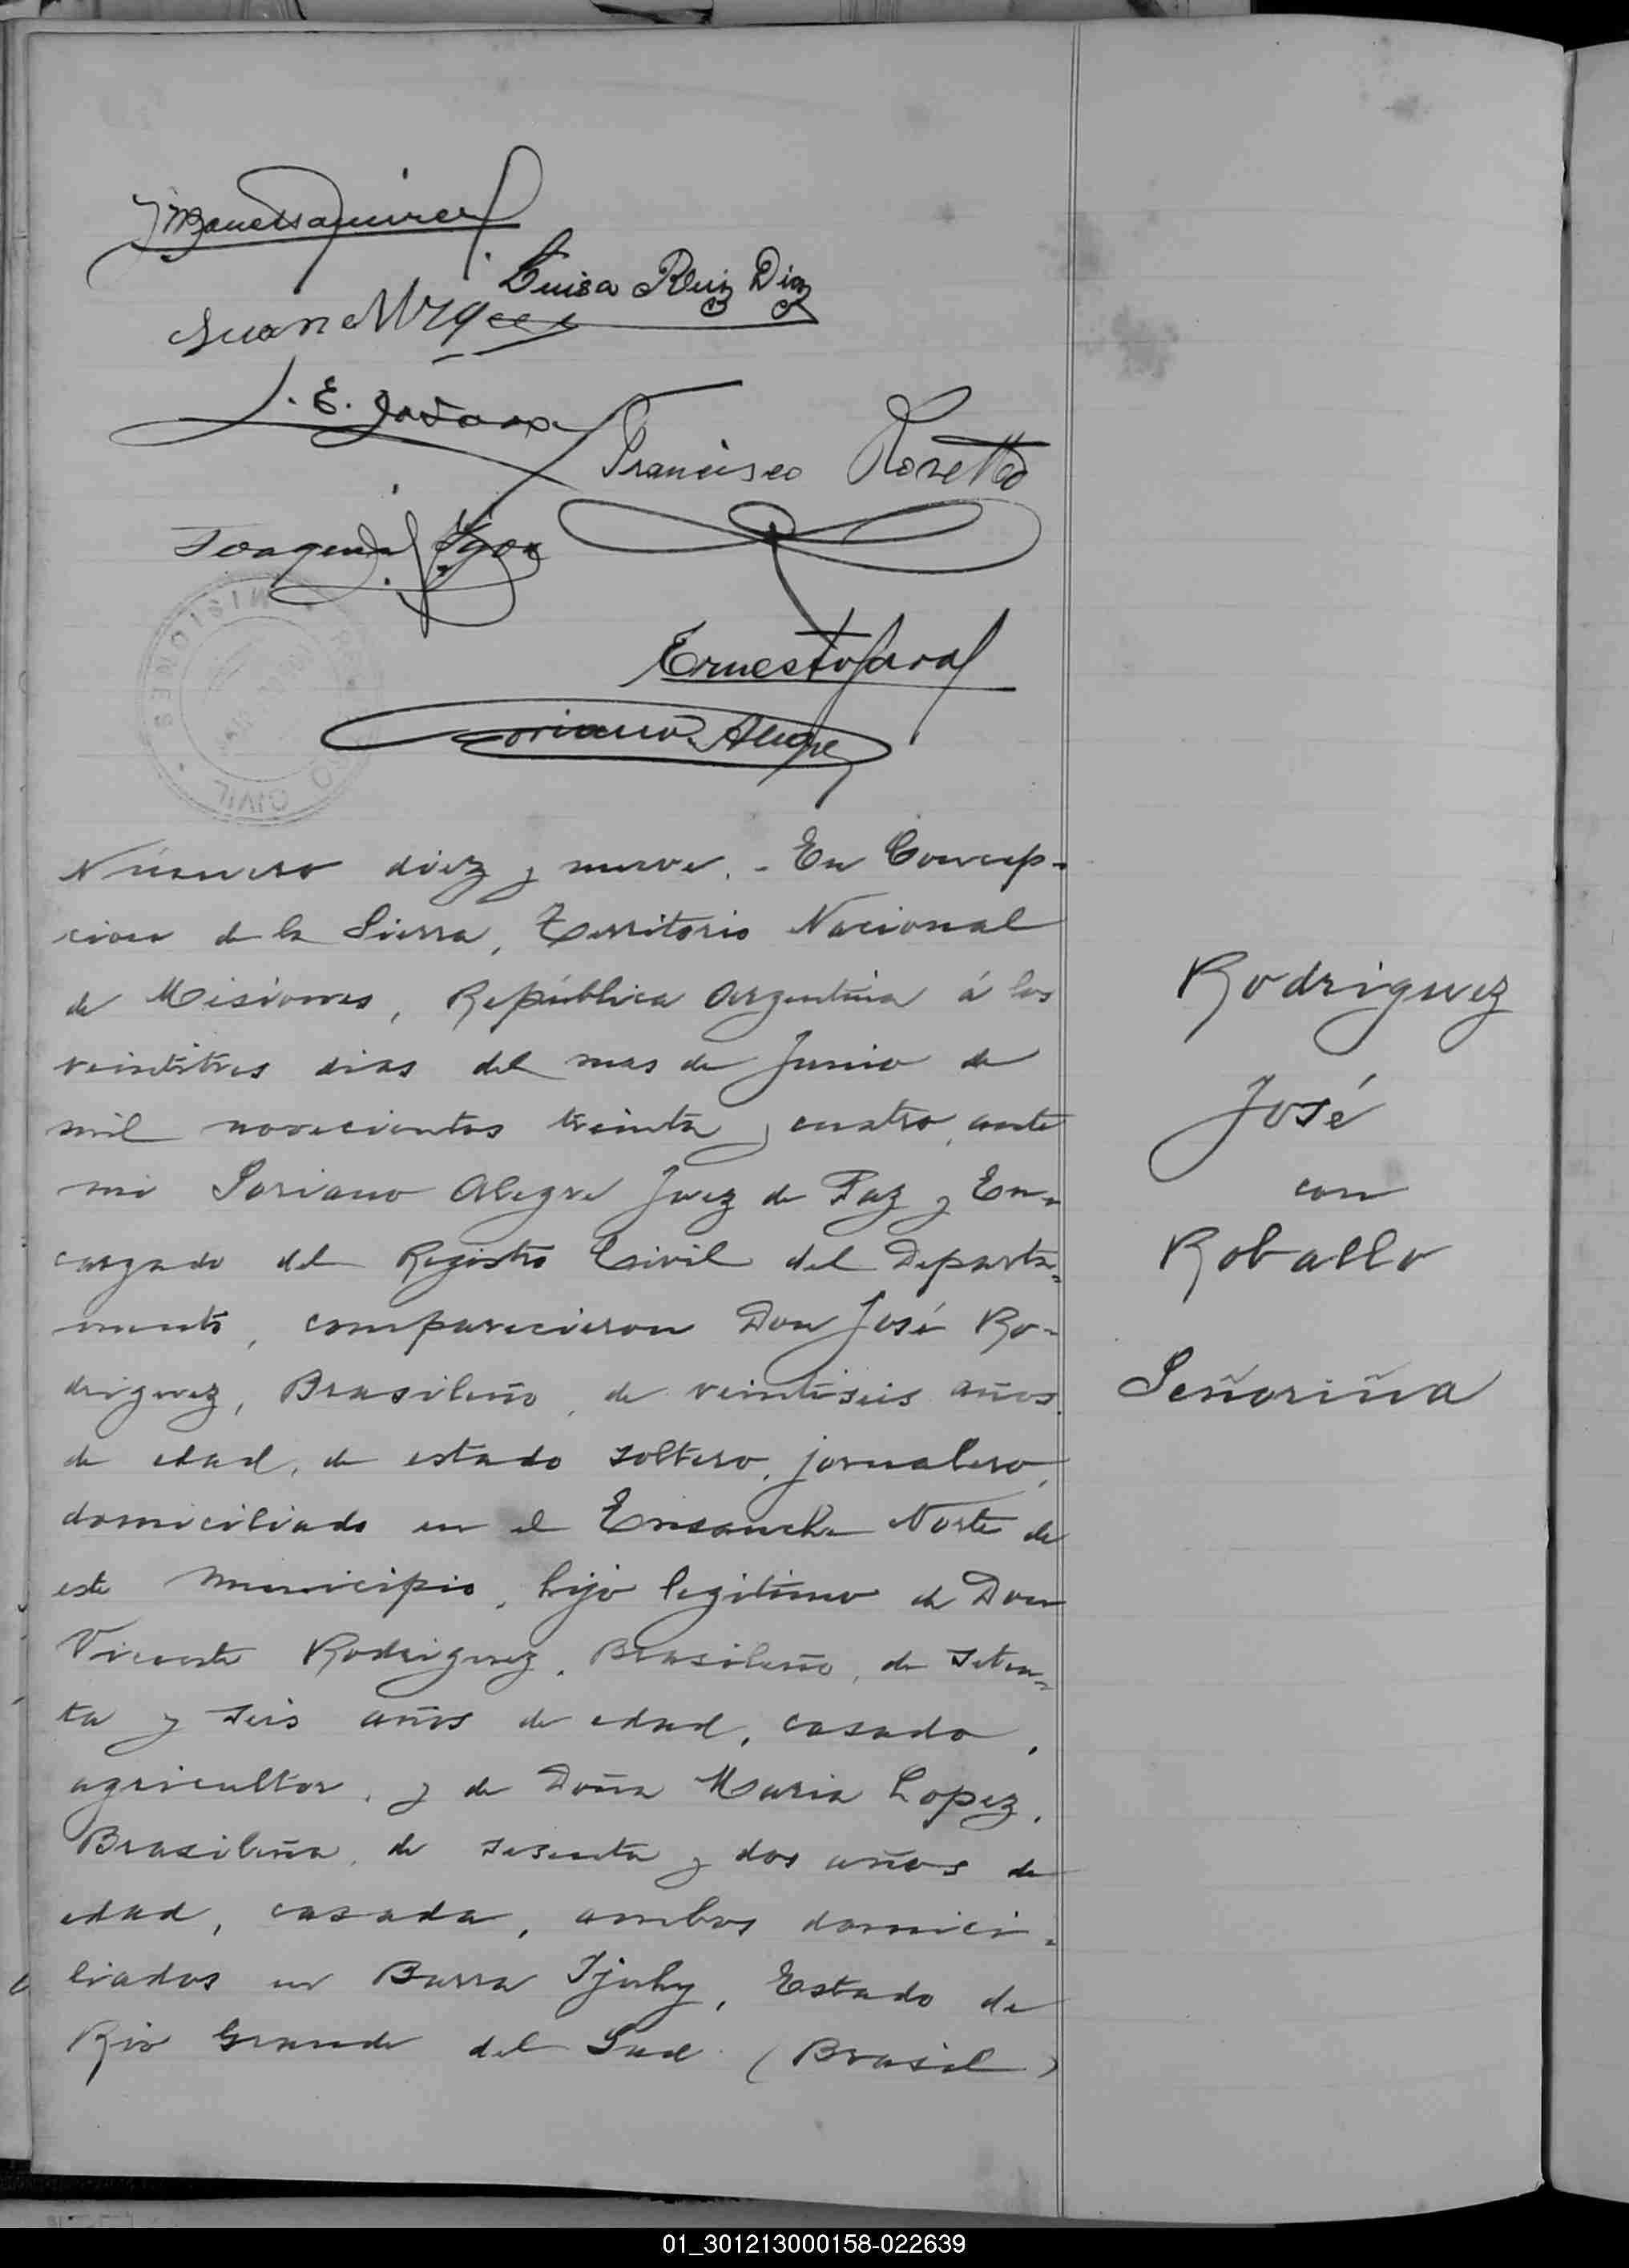 Luisa Ruiz Diaz
Francisco Rosetto
Soriano Alegre
Número diez y nueve. - En Concep-
cion de la Sierra, Territorio Nacional
de Misiones, República Argentina á los
veintitres dias del mes de Junio de
mil novecientos treinta y cuatro, ante
mi Soriano Alegre Juez de Paz y En-
cargado del Registro Civil del Departa-
mento, comparecieron Don José Ro-
driguez, Brasileño, de veintiseis años
de edad, de estado soltero, jornalero,
domiciliado en el Ensanche Norte de
este Municipio, hijo legitimo de Don
Vicente Rodriguez, Brasileño, de seten-
ta y seis años de edad, casado,
agricultor, y de Doña Maria Lopez,
Brasileña, de sesenta y dos años de
edad, casada, ambos domici-
liados en Barra Ijuhy, Estado de
Rio Grande del Sud (Brasil)
Rodriguez
José
con
Roballo
Señoriña
MISIONES
CIVIL
01_301213000158-022639